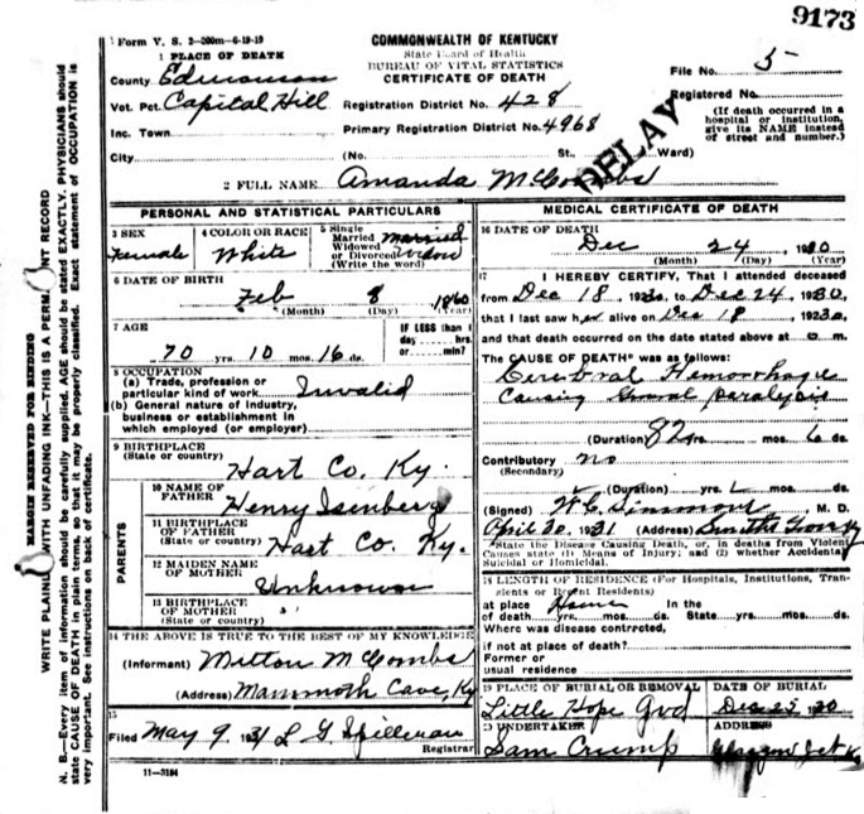 9173
Form V. S. 2-200m-6-19-19
COMMONWEALTH OF KENTUCKY
State Board of Health
BUREAU OF VITAL STATISTICS
CERTIFICATE OF DEATH
1 PLACE OF DEATH
County Edmonson
Vot. Pct. Capital Hill
Inc. Town
City
Registration District No. 428
Primary Registration District No. 4968
(No. St. Ward)
File No. 5
Registered No.
(If death occurred in a
hospital or institution,
give its NAME instead
of street and number.)
DELAY
2 FULL NAME Amanda McCombs
PERSONAL AND STATISTICAL PARTICULARS
3 SEX
Female
4 COLOR OR RACE
White
5 Single
Married
Widowed
or Divorced
(Write the word)
Married
Widow
6 DATE OF BIRTH
Feb 8 1860
(Month) (Day) (Year)
7 AGE
70 yrs. 10 mos. 16 ds.
IF LESS than 1
day hrs.
or min?
8 OCCUPATION
(a) Trade, profession or
particular kind of work Invalid
(b) General nature of industry,
business or establishment in
which employed (or employer)
9 BIRTHPLACE
(State or country)
Hart Co. Ky.
PARENTS
10 NAME OF
FATHER
Henry Isenberg
11 BIRTHPLACE
OF FATHER
(State or country)
Hart Co. Ky.
12 MAIDEN NAME
OF MOTHER
Unknown
13 BIRTHPLACE
OF MOTHER
(State or country)
14 THE ABOVE IS TRUE TO THE BEST OF MY KNOWLEDGE
(Informant) Mitton McCombs
(Address) Mammoth Cave, Ky
15
Filed May 9, 1931 L G Spillman
Registrar
11-3184
MEDICAL CERTIFICATE OF DEATH
16 DATE OF DEATH
Dec 24, 1930
(Month) (Day) (Year)
17 I HEREBY CERTIFY, That I attended deceased
from Dec 18, 1930, to Dec 24, 1930,
that I last saw her alive on Dec 18, 1930,
and that death occurred on the date stated above at m.
The CAUSE OF DEATH* was as follows:
Cerebral Hemorrhage
Causing General paralysis
(Duration) yrs. mos. 6 ds.
Contributory no
(Secondary)
(Duration) yrs. mos. ds.
(Signed) W. C. Simmons, M. D.
April 30, 1931 (Address) Smiths Grove Ky
*State the Disease Causing Death, or, in deaths from Violent
Causes state (1) Means of Injury; and (2) whether Accidental,
Suicidal or Homicidal.
18 LENGTH OF RESIDENCE (For Hospitals, Institutions, Tran-
sients or Recent Residents)
at place Home In the
of death yrs. mos. ds. State yrs. mos. ds.
Where was disease contrrcted,
if not at place of death?
Former or
usual residence
19 PLACE OF BURIAL OR REMOVAL
Little Hope Gvd
DATE OF BURIAL
Dec 25 1930
20 UNDERTAKER
Sam Crump
ADDRESS
Glasgow Jct K
MARGIN RESERVED FOR BINDING
WRITE PLAINLY WITH UNFADING INK—THIS IS A PERMANENT RECORD
N. B.—Every item of information should be carefully supplied. AGE should be stated EXACTLY. PHYSICIANS should
state CAUSE OF DEATH in plain terms, so that it may be properly classified. Exact statement of OCCUPATION is
very important. See instructions on back of certificate.